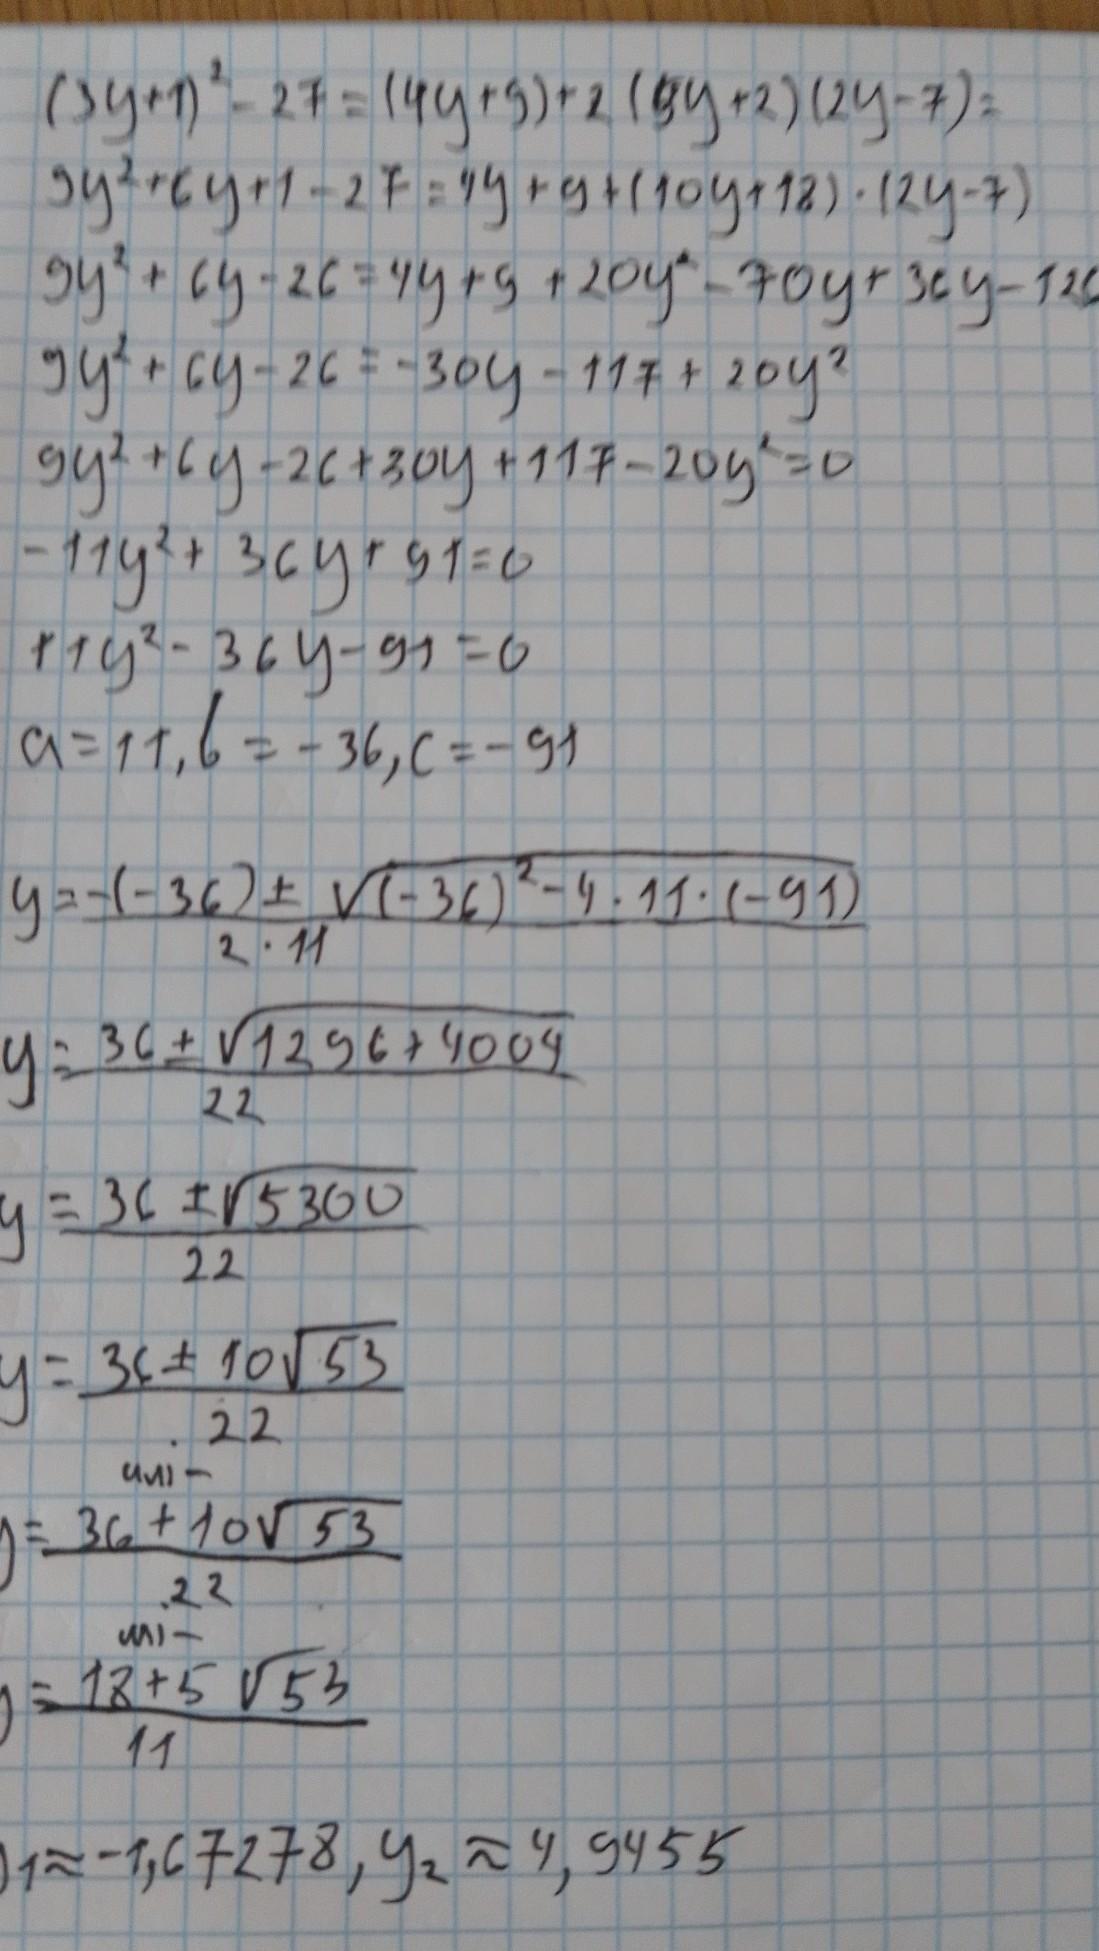 (3y+1)² - 27 = (4y+9)+2(5y+2)(2y-7)=
9y²+6y+1-27=4y+9+(10y+18)·(2y-7)
9y²+6y-26=4y+9+20y²-70y+36y-126
9y²+6y-26=-30y-117+20y²
9y²+6y-26+30y+117-20y²=0
-11y²+36y+91=0
11y²-36y-91=0
a=11, b=-36, c=-91
y=-(-36)±√(-36)²-4·11·(-91)
2·11
y=36±√1296+4004
22
y=36±√5300
22
y=36±10√53
22
или -
y=36+10√53
22
или -
y=18+5√53
11
y1≈-1,67278, y2≈4,9455